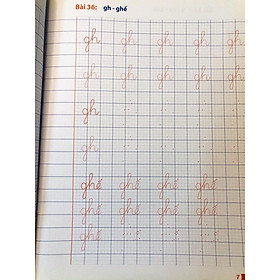 Bài 36: gh - ghế
gh gh gh gh gh gh
gh gh gh gh gh gh
gh
gh
ghế ghế ghế ghế
ghế ghế ghế ghế
ghế ghế ghế ghế
7